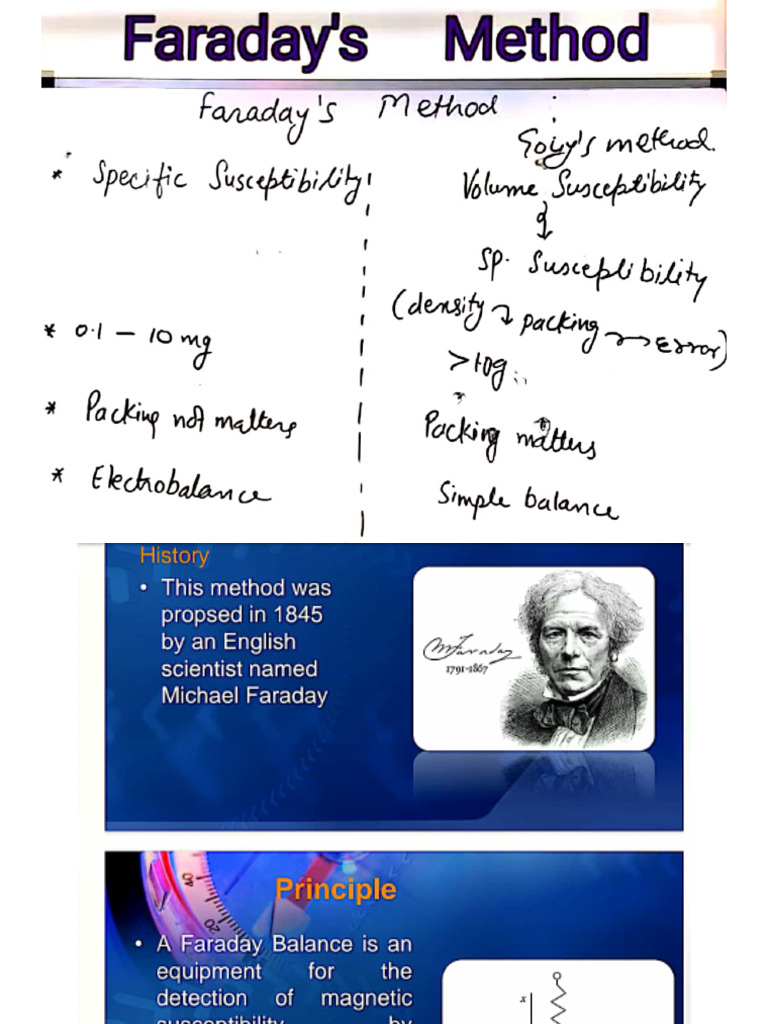 Faraday's Method
Faraday's Method :
Gouy's method.
* Specific Susceptibility
Volume Susceptibility
Sp. Susceptibility
(density → packing → Error)
* 0.1 – 10 mg
>10g
* Packing not matters
Packing matters
* Electrobalance
Simple balance
History
• This method was
propsed in 1845
by an English
scientist named
Michael Faraday
M Faraday
1791-1867
Principle
40
20
• A Faraday Balance is an
equipment for the
detection of magnetic
susceptibility by
x